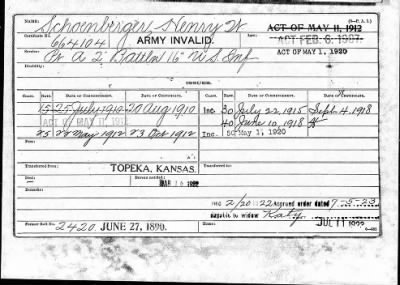 (3—P. A. I.)
NAME: Schoenberger Henry W ACT OF MAY 11, 1912
Certificate No. 664104 ARMY INVALID. Law: ACT FEB. 6. 1907
Service: Pr A 2" Battln 16" U S Inf ACT OF MAY 1, 1920
Disability:
RATE. DATE OF COMMENCEMENT. DATE OF CERTIFICATE. RATE. DATE OF COMMENCEMENT. DATE OF CERTIFICATE.
15 25 July 1910 20 Aug 1910 Inc. 30 July 22, 1915 Sept 4, 1918
ACT OF MAY 11, 1912 40 June 10, 1918
25 22 May 1912 23 Oct 1912 Inc. 50 MAY 1, 1920
Transferred from TOPEKA, KANSAS. Transferred to
Death notice
Remarks:
DIED 2/20 1922 Accrued order dated 7-5-23
payable to widow Katy JUL 11
Former Roll No. 2420 JUNE 27, 1890.